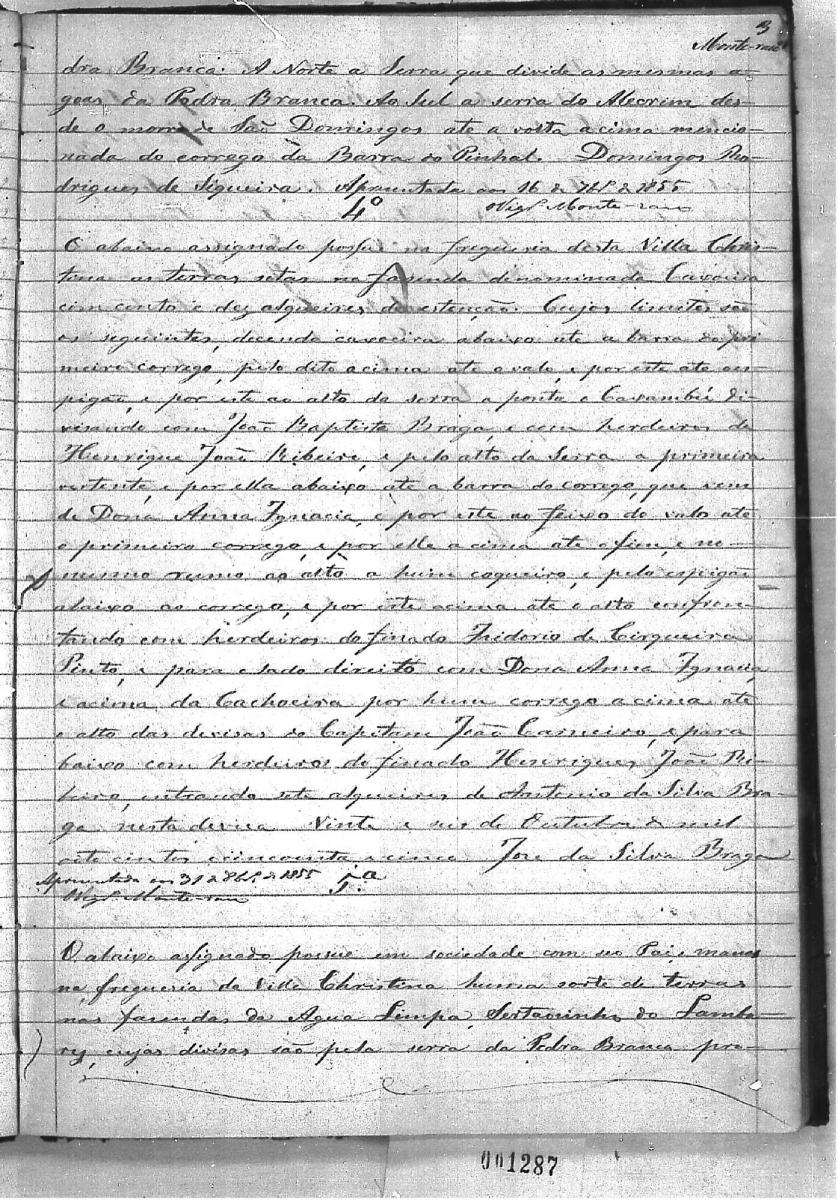 3
Monte-raso
dra Branca. A Norte a Serra que divide as mesmas a-
goas da Pedra Branca. Ao Sul a serra do Alecrim des-
de o morro de São Domingos ate a volta acima mencio-
nada do corrego da Barra do Pinhal. Domingos Ro-
drigues de Siqueira. Apresentada aos 16 de 7br.º de 1855
4º Vigº Monte-raso
O abaixo assignado possue na freguesia desta Villa Chris-
tina as terras sitas na fazenda denominada Caxoeira
com cento e dez alqueires de estenção. Cujos limites são
os seguintes, decendo caxoeira abaixo até a barra do pri
meiro corrego, pelo dito acima até o valo, e por este até es-
pigão, e por este ao alto da serra a ponta e Caxambú di-
visando com João Baptista Braga, e com herdeiros de
Henrique João Ribeiro, e pelo alto da Serra a primeira
vertente, e por ella abaixo até a barra do corrego, que vem
de Dona Anna Ignacia, e por este ao feixo do valo até
o primeiro corrego, e por elle acima até o fim, e no
mesmo rumo ao alto a hum coqueiro, e pelo espigão
abaixo ao corrego, e por este acima até o alto confron-
tando com herdeiros do finado Izidorio de Cirqueira
Pinto, e para o lado direito com Dona Anna Ignacia,
e acima da Cachoeira por hum corrego acima até
o alto das devisas do Capitam João Carneiro, e para
baixo com herdeiros do finado Henriques João Ri-
beiro, entrando sete alqueires de Antonio da Silva Bra-
ga nesta devisa Vinte e seis de Outubro de mil
oito centos e cincoenta e cinco Jose da Silva Braga
Apresentada em 31 de 8br.º de 1855 5.ª
Vigº Monte-raso
O abaixo assignado possue em sociedade com seo Pai e manos
na freguesia da Villa Christina huma sorte de terras
nas fazendas da Agua Limpa, Sertaosinho, do Lamba-
ry, cujas divisas são pela serra da Pedra Branca pro-
001287